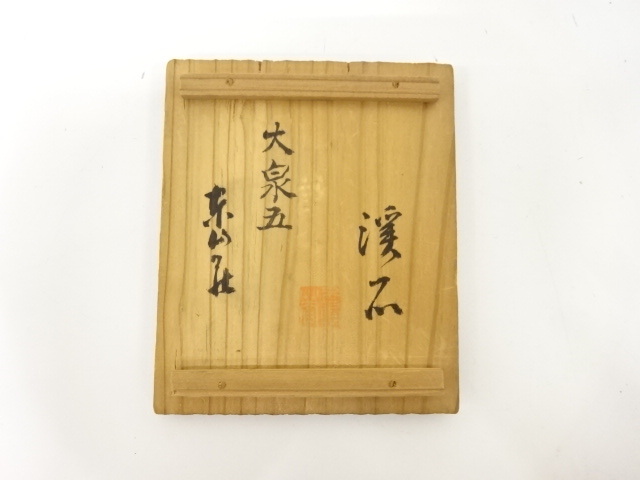 渓石
大泉五
東山荘